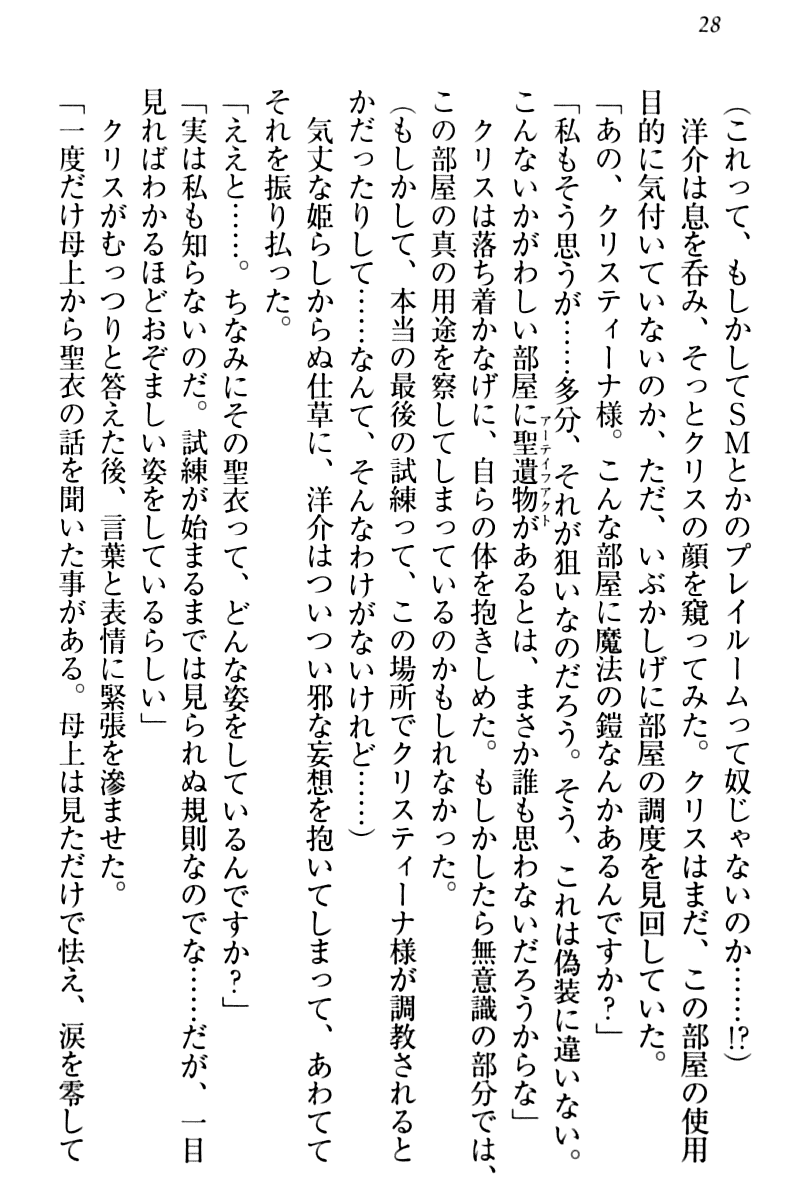 28
(これって、もしかしてSMとかのプレイルームって奴じゃないのか……!?)
　洋介は息を呑み、そっとクリスの顔を窺ってみた。クリスはまだ、この部屋の使用
目的に気付いていないのか、ただ、いぶかしげに部屋の調度を見回していた。
「あの、クリスティーナ様。こんな部屋に魔法の鎧なんかあるんですか?」
「私もそう思うが……多分、それが狙いなのだろう。そう、これは偽装に違いない。
こんないかがわしい部屋に聖遺物があるとは、まさか誰も思わないだろうからな」
アーティファクト
　クリスは落ち着かなげに、自らの体を抱きしめた。もしかしたら無意識の部分では、
この部屋の真の用途を察してしまっているのかもしれなかった。
(もしかして、本当の最後の試練って、この場所でクリスティーナ様が調教されると
かだったりして……なんて、そんなわけがないけれど……)
　気丈な姫らしからぬ仕草に、洋介はついつい邪な妄想を抱いてしまって、あわてて
それを振り払った。
「ええと……。ちなみにその聖衣って、どんな姿をしているんですか?」
「実は私も知らないのだ。試練が始まるまでは見られぬ規則なのでな……だが、一目
見ればわかるほどおぞましい姿をしているらしい」
　クリスがむっつりと答えた後、言葉と表情に緊張を滲ませた。
「一度だけ母上から聖衣の話を聞いた事がある。母上は見ただけで怯え、涙を零して